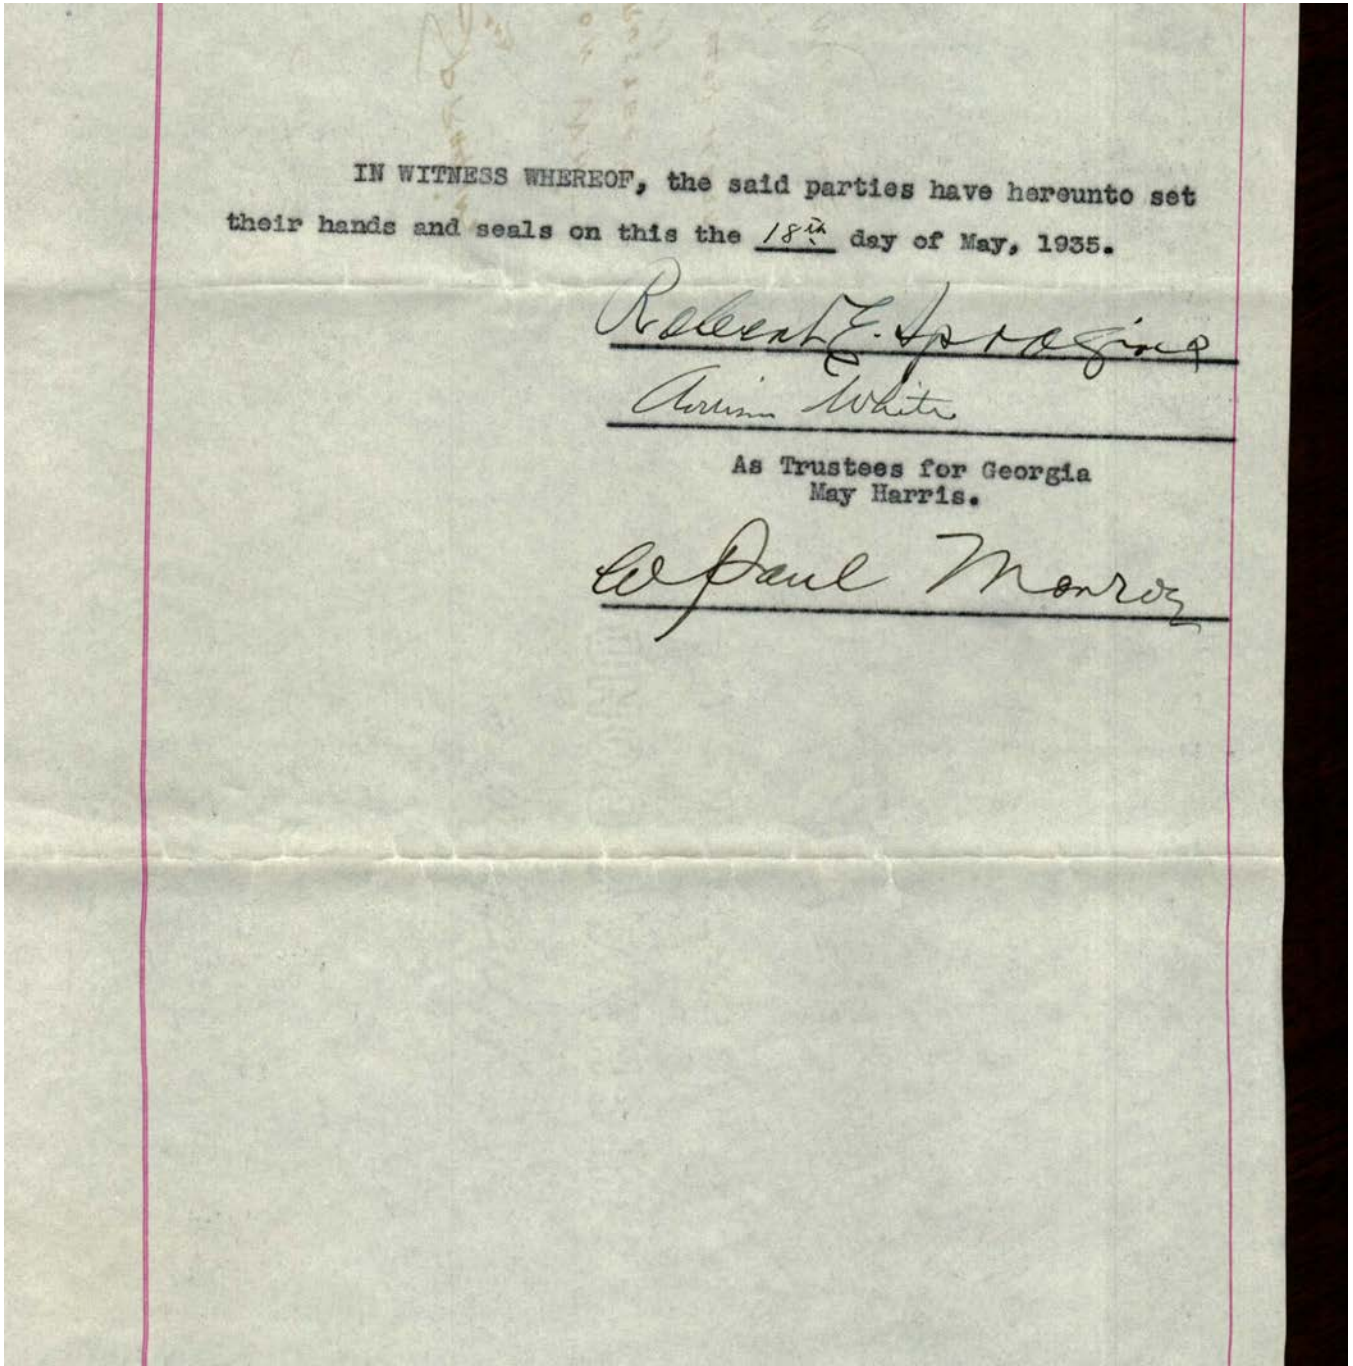 IN WITNESS WHEREOF, the said parties have hereunto set
their hands and seals on this the 18th day of May, 1935.
Robert E. Spragins
White
As Trustees for Georgia
May Harris.
W Paul Monroe